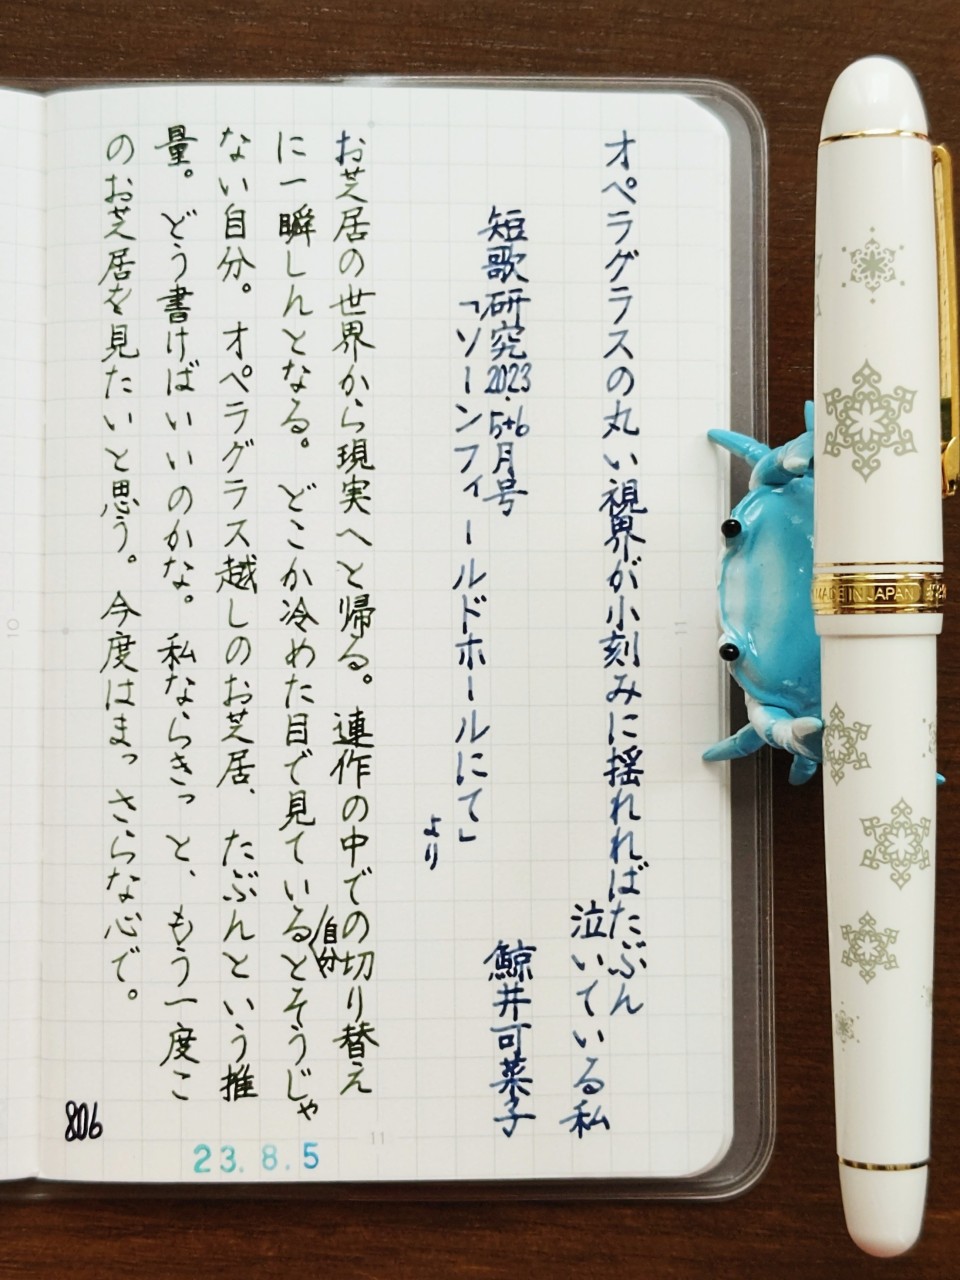 オペラグラスの丸い視界が小刻みに揺れればたぶん
泣いている私
短歌研究2023.5+6月号
鯨井可菜子
「ソーンフィールドホールにて」
より
お芝居の世界から現実へと帰る。連作の中での切り替え
に一瞬しんとなる。どこか冷めた目で見ている自分とそうじゃ
ない自分。オペラグラス越しのお芝居、たぶんという推
量。どう書けばいいのかな。私ならきっと、もう一度こ
のお芝居を見たいと思う。今度はまっさらな心で。
806
23.8.5
11
11
10
MADE IN JAPAN